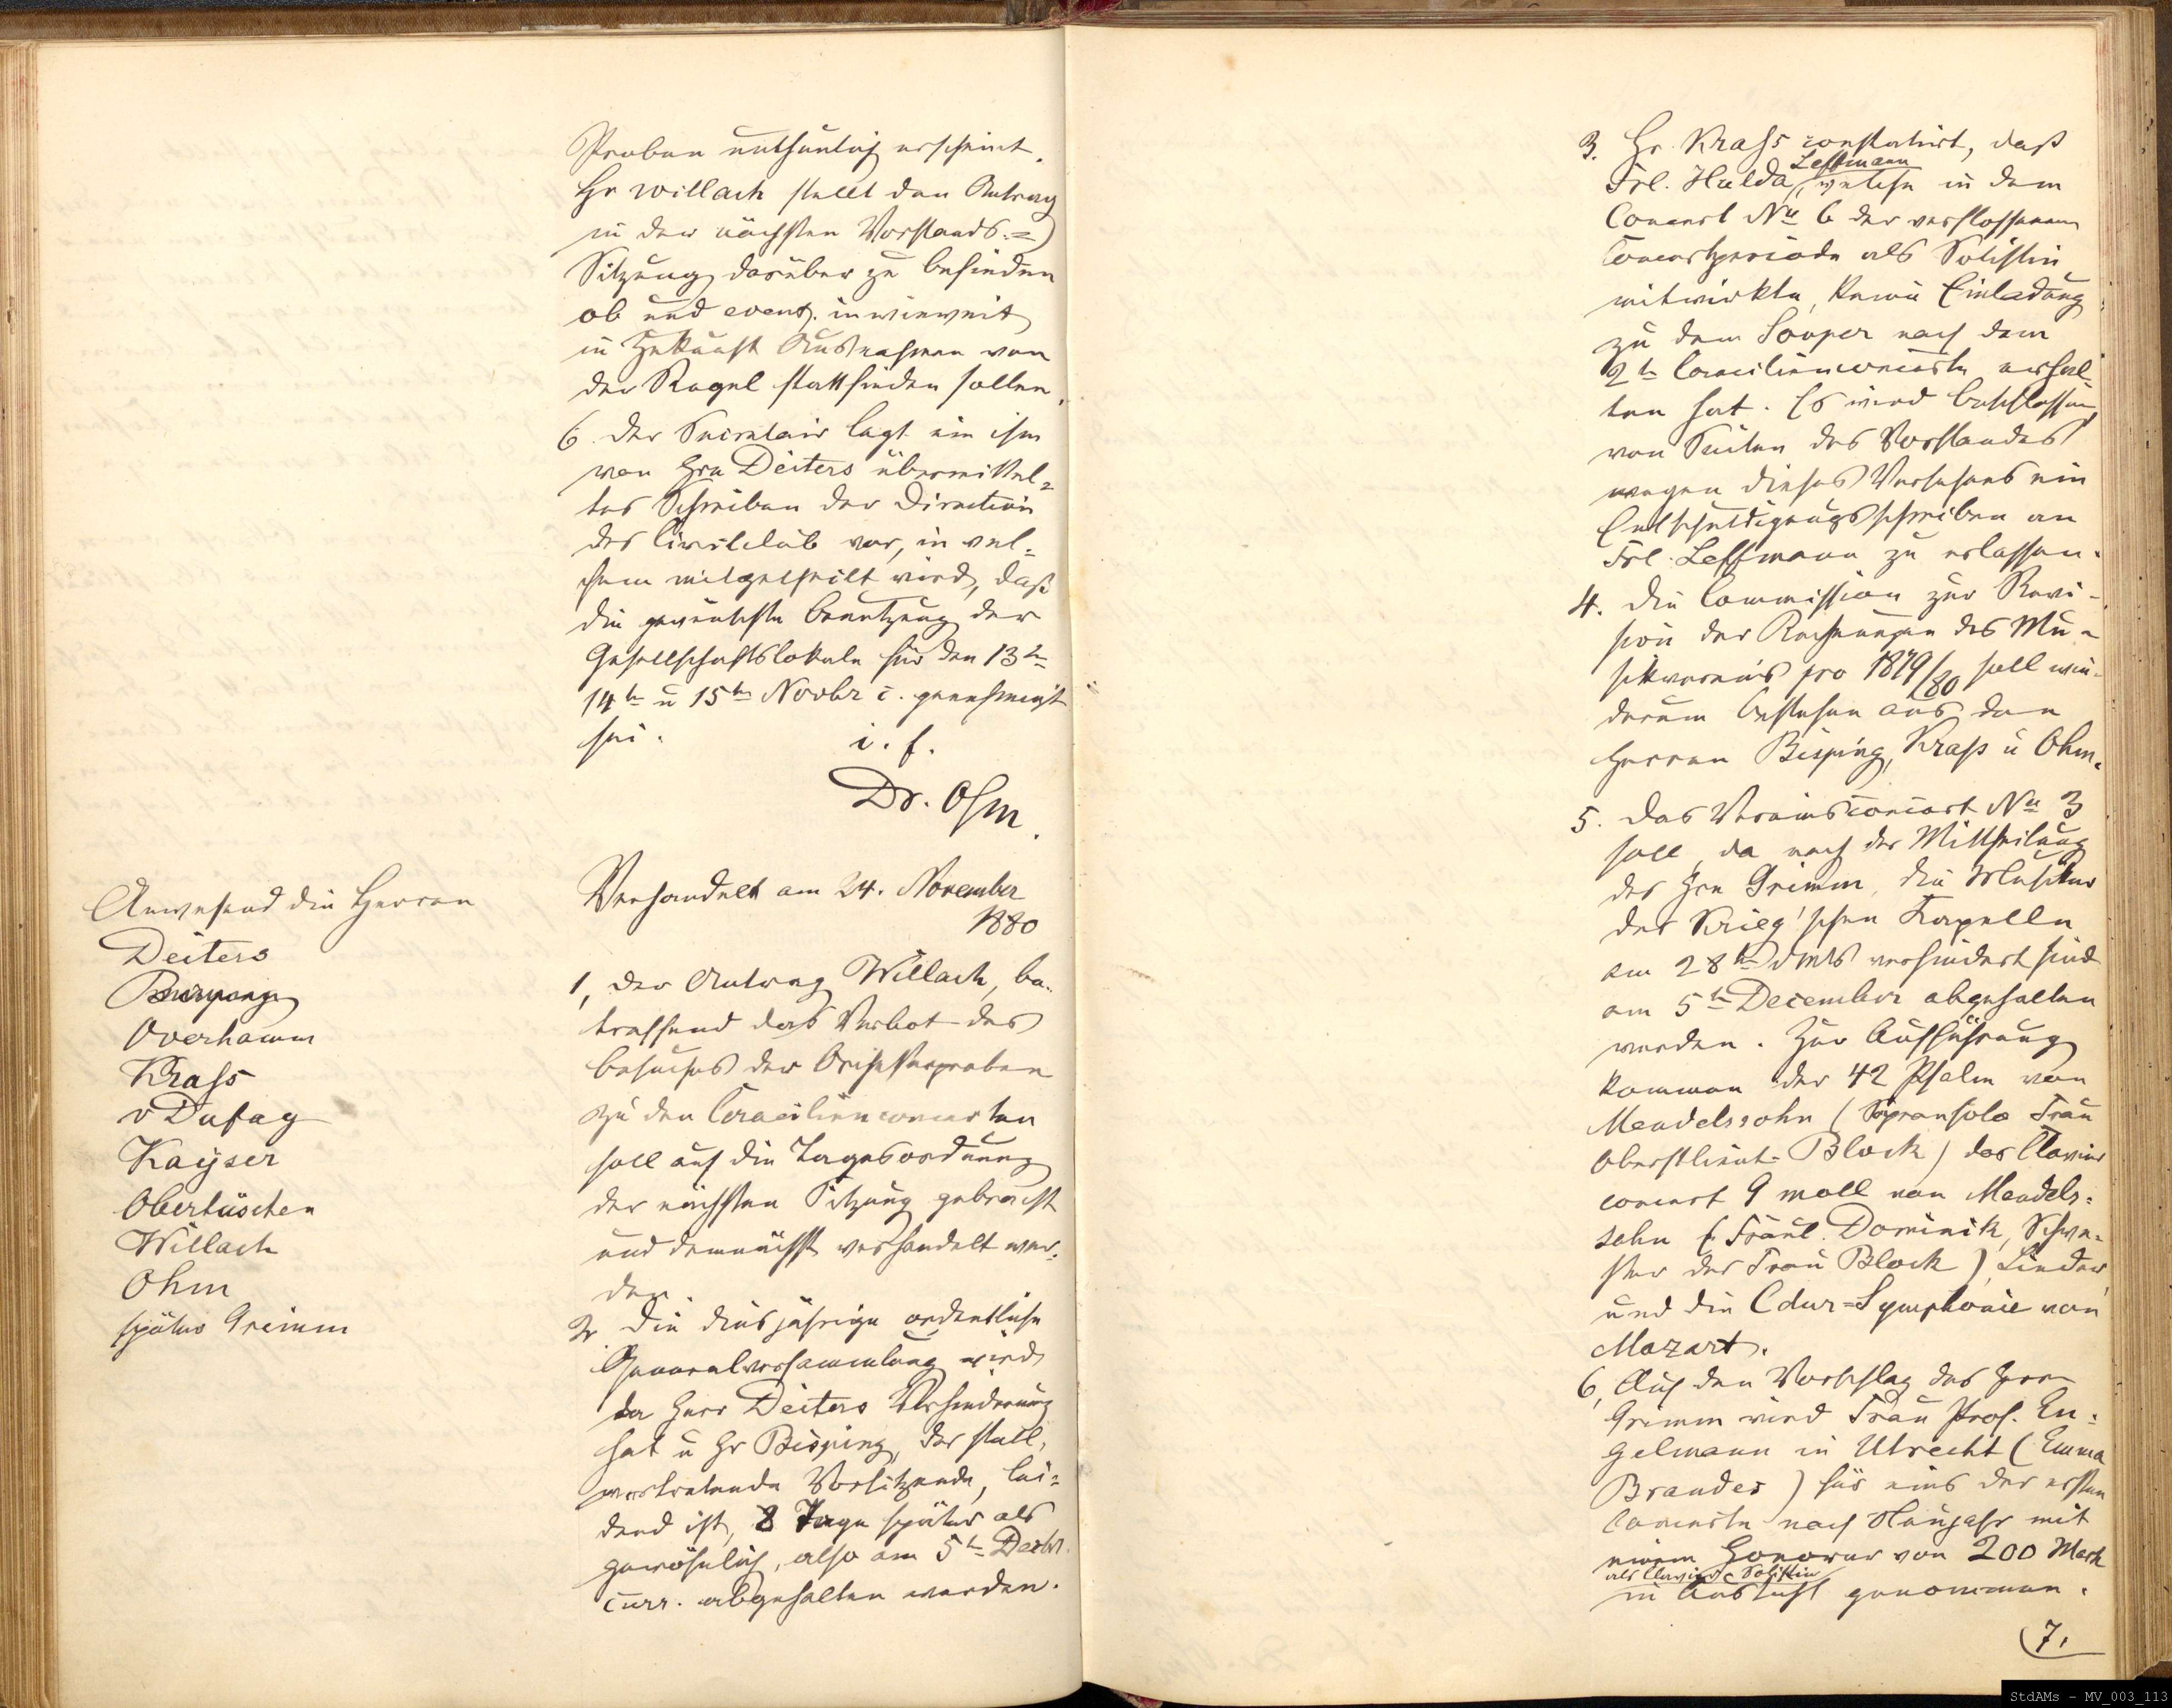 Proben unthunlich erscheint.
Hr Willach stellt den Antrag
in der nächsten Vorstands-
Sitzung darüber zu befinden
ob und event. inwieweit
in Zukunft Ausnahmen von
der Regel stattfinden sollen.
6. Der Secretair legt ein ihm
von Hrn Deiters übermittel-
tes Schreiben der Direction
des Civilclub vor, in wel-
chem mitgetheilt wird, daß
die gewünschte Benutzung der
Gesellschaftslokale für den 13tn
14tn u 15tn Novbr c. genehmigt
sei.
i. f.
Dr. Ohm.
Anwesend die Herren
Deiters
Overhamm
Krass
v Dufay
Kayser
Obertüschen
Willach
Ohm
später Grimm
Verhandelt am 24. November
1880
1, Der Antrag Willach, be-
treffend das Verbot des
Besuches der Orchesterproben
zu den Caecilienconcerten
soll auf die Tagesordnung
der nächsten Sitzung gebracht
und demnächst verhandelt wer-
den.
2 Die diesjährige ordentliche
Generalversammlung wird
da Herr Deiters Verhinderung
hat u Hr Bisping, der stell-
vertretende Vorsitzende, lei-
dend ist, 8 Tage später als
gewöhnlich, also am 5tn Decbr.
curr. abgehalten werden.
3. Hr. Krass constatirt, daß
Frl. Hulda Leffmann, welche in dem
Concert No 6 der verflossenen
Concertperiode als Solistin
mitwirkte, keine Einladung
zu dem Souper nach dem
2tn Caecilienconcerte erhal-
ten hat. Es wird beschlossen,
von Seiten des Vorstandes
wegen dieses Versehens ein
Entschuldigungsschreiben an
Frl. Leffmann zu erlassen.
4. Die Commission zur Revi-
sion der Rechnungen des Mu-
sikvereins pro 1879/80 soll wie-
derum bestehen aus den
Herren Bisping, Krass u Ohm.
5. Das Vereinsconcert No 3
soll, da nach der Mittheilung
des Hrn Grimm, die Musiker
der Krieg'schen Kapelle
am 28tn dMts verhindert sind
am 5tn December abgehalten
werden. Zur Aufführung
kommen der 42 Psalm von
Mendelssohn (Sopransolo Frau
Oberstlieut. Block) das Clavier
concert G moll von Mendels-
sohn (Fräul. Dominik, Schwe-
ster der Frau Block), Lieder,
und die Cdur-Symphonie von
Mozart.
6, Auf den Vorschlag des Hrn
Grimm wird Frau Prof. En-
gelmann in Utrecht (Emma
Brandes) für eins der ersten
Concerte nach Neujahr mit
einem Honorar von 200 Mark
als Clavier-Solistin
in Aussicht genommen.
7,
StdAMs - MV_003_113